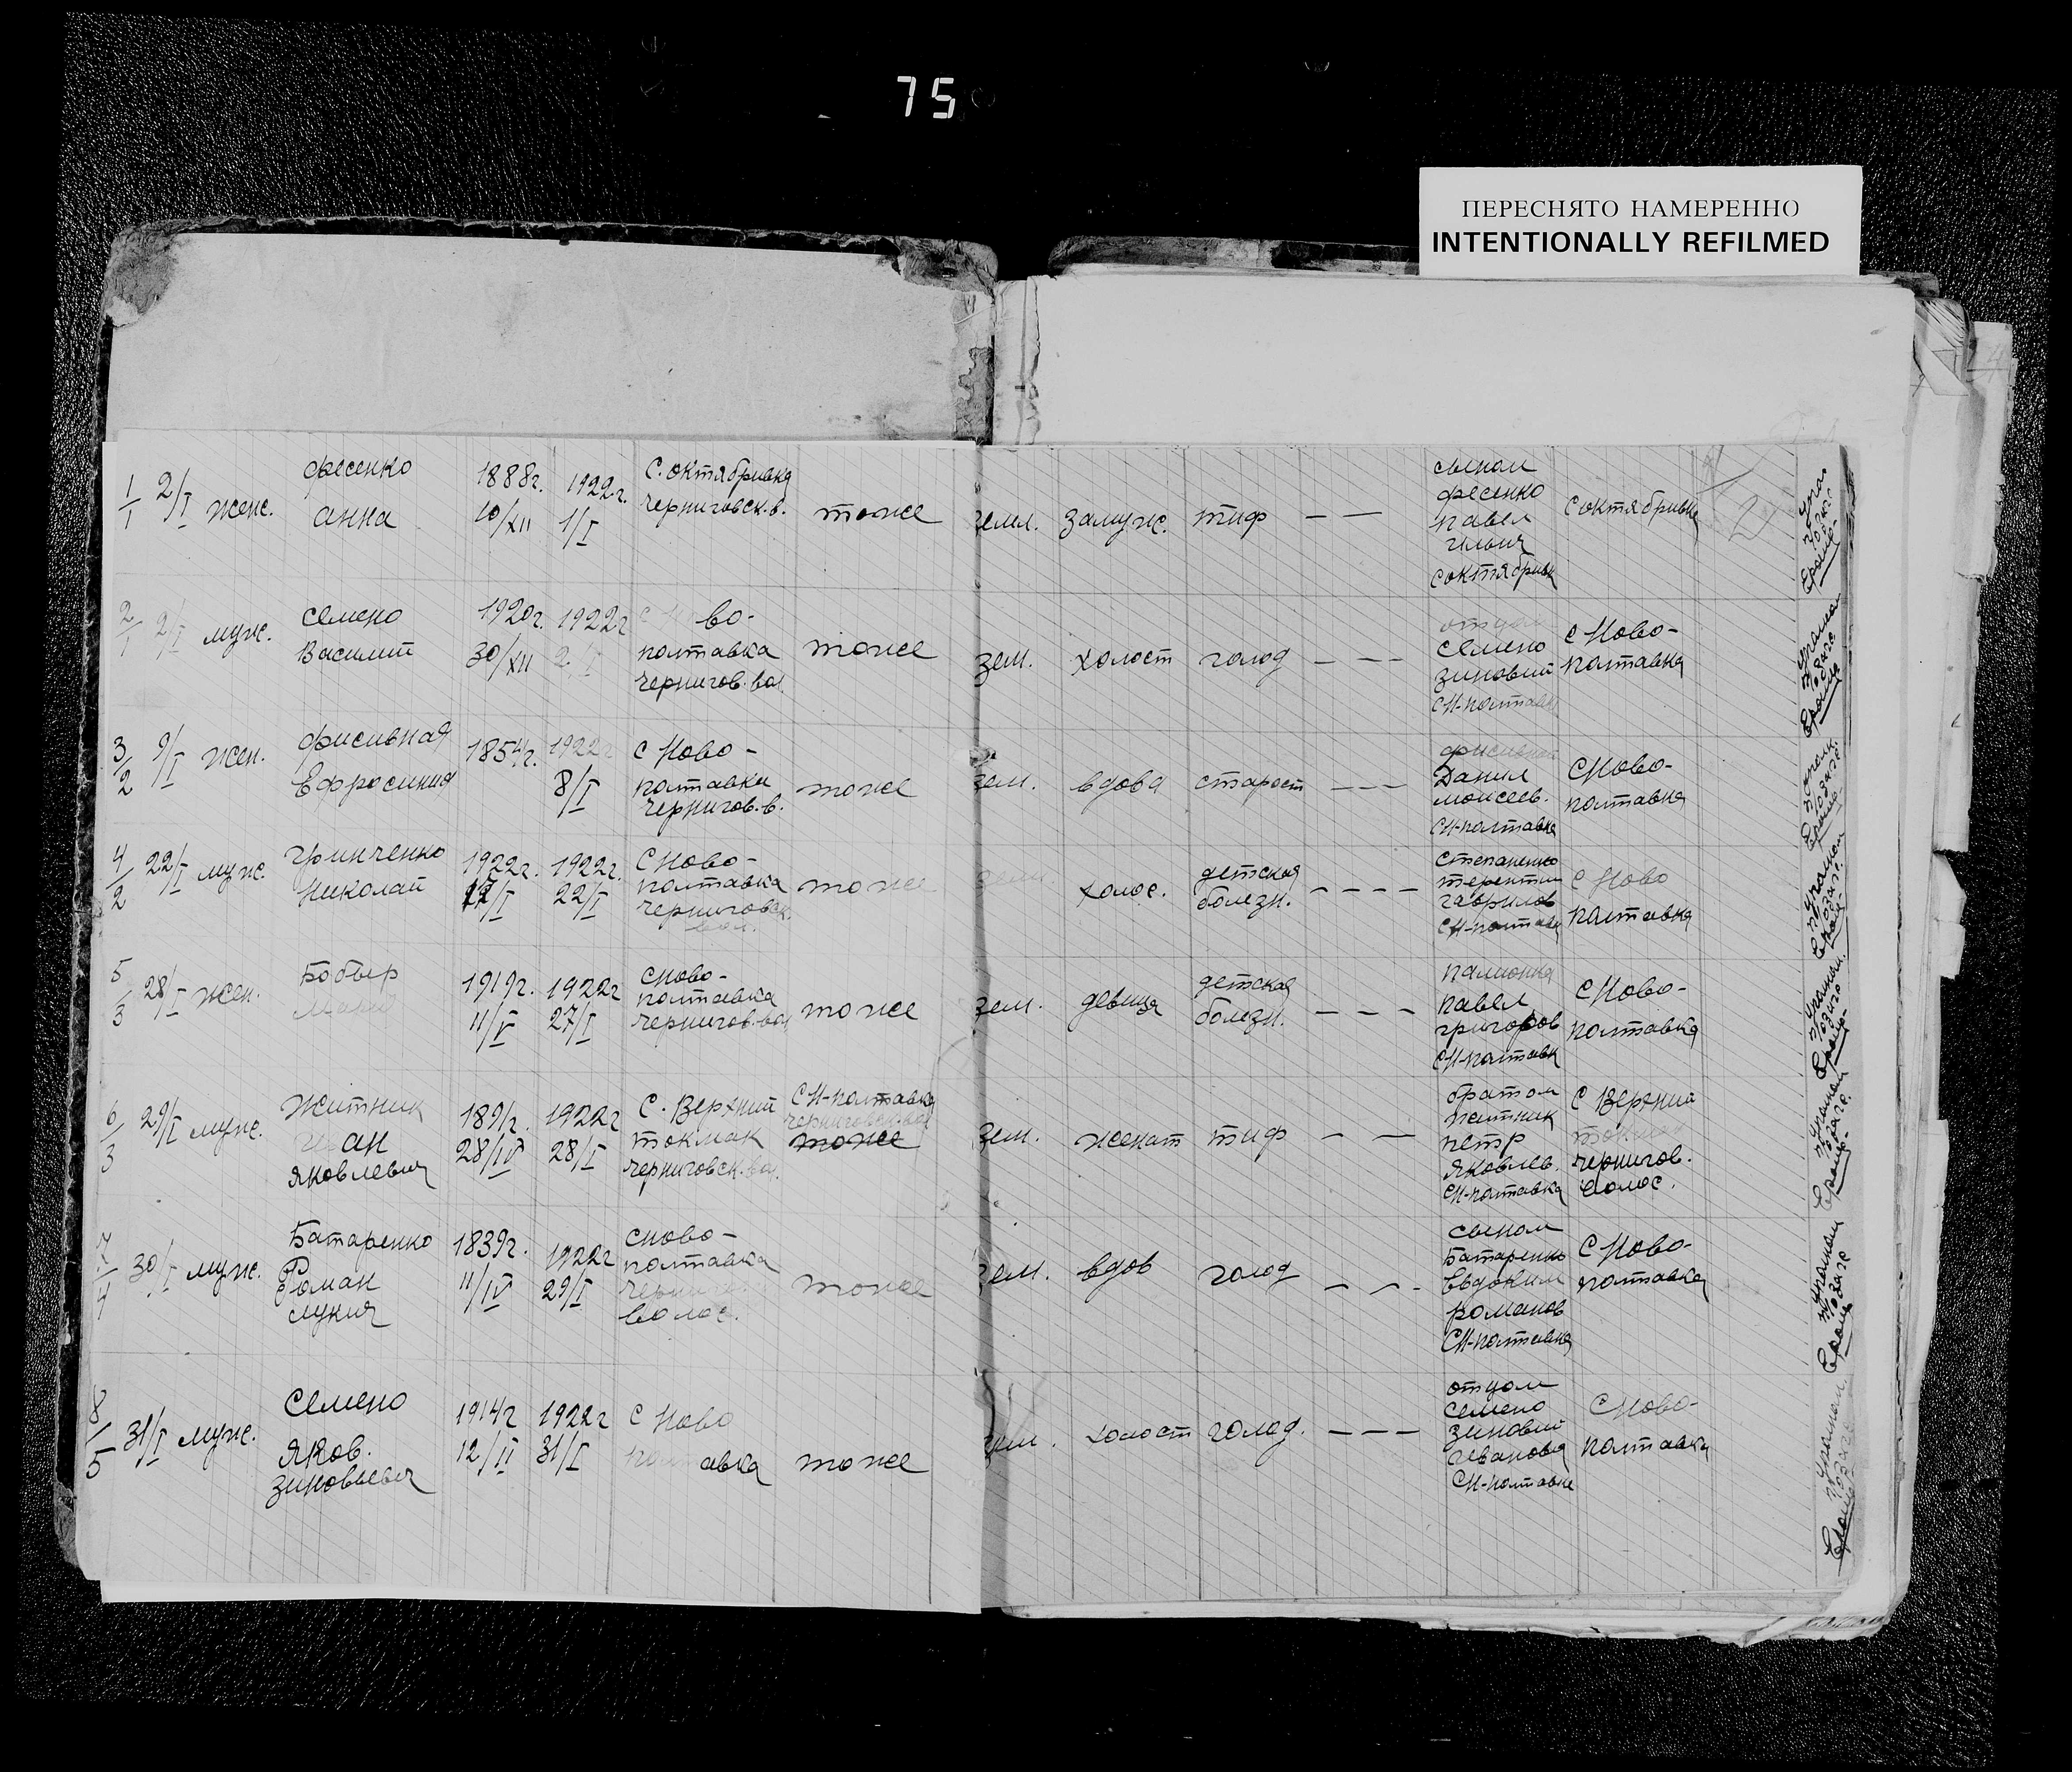 75
ПЕРЕСНЯТО НАМЕРЕННО
INTENTIONALLY REFILMED
1/1 2/I женс.
фесенко
анна
1888г.
10/XII
1922г.
1/I
С. Октябривка
черниговск. в.
тоже
земл.
замужс.
тиф
— —
сыном
фесенко
павел
ильич
С октябривк
С октябривка
2/1 2/I мужс.
семено
Василий
1920г.
30/XII
1922г
2/I
во-
полтавка
чернигов. вол.
тоже
зем.
холост
голод
— — —
отцом
семено
зиновий
СН-полтавк
С Ново-
полтавка
3/2 9/I жен.
Ефросиния
1854г.
1922г
8/I
С Ново -
полтавка
чернигов. в.
тоже
зем.
вдова
старост
— — —
Данил
моисеев.
СН-полтавка
СНово-
полтавка
4/2 22/I мужс.
Гринченко
Николай
1922г.
1922г.
22/I
С Ново-
полтавка
черниговск.
вол.
тоже
холос.
детская
болезн.
— — — —
степаненко
терентий
гаврилов
СН-полтавк
С Ново
полтавка
5/3 28/I жен.
Бобыр
1919г.
11/V
1922г
27/I
СНово-
полтавка
чернигов. вол
тоже
зем.
девица
детская
болезн.
— — —
павел
григоров
СН-полтавк
СНово-
полтавка
6/3 29/I мужс.
Житник
ан
яковлевич
1891г.
28/IV
1922г
28/I
С. Верхний
токмак
черниговск. вол.
СН-полтавка
черниговск. вол
тоже
зем.
женат
тиф
— —
братом
житник
петр
яковлев.
СН-полтавка
С Верхний
токмак
чернигов.
волос.
7/4 30/I мужс.
Батаренко
Роман
лукич
1839г.
11/IV
1922г
29/I
СНово-
полтавка
волос.
тоже
зем.
вдов
голод
— — -
сыном
Батаренко
Евдоким
романов
СН-полтавка
СНово-
полтавка
8/5 31/I мужс.
Семено
Яков.
зиновьевич
1914г
12/II
1922г
31/I
С Ново
полтавка
тоже
зем.
холост
голод.
— — —
отцом
семено
зиновий
Иванович
СН-полтавке
СНово-
полтавка